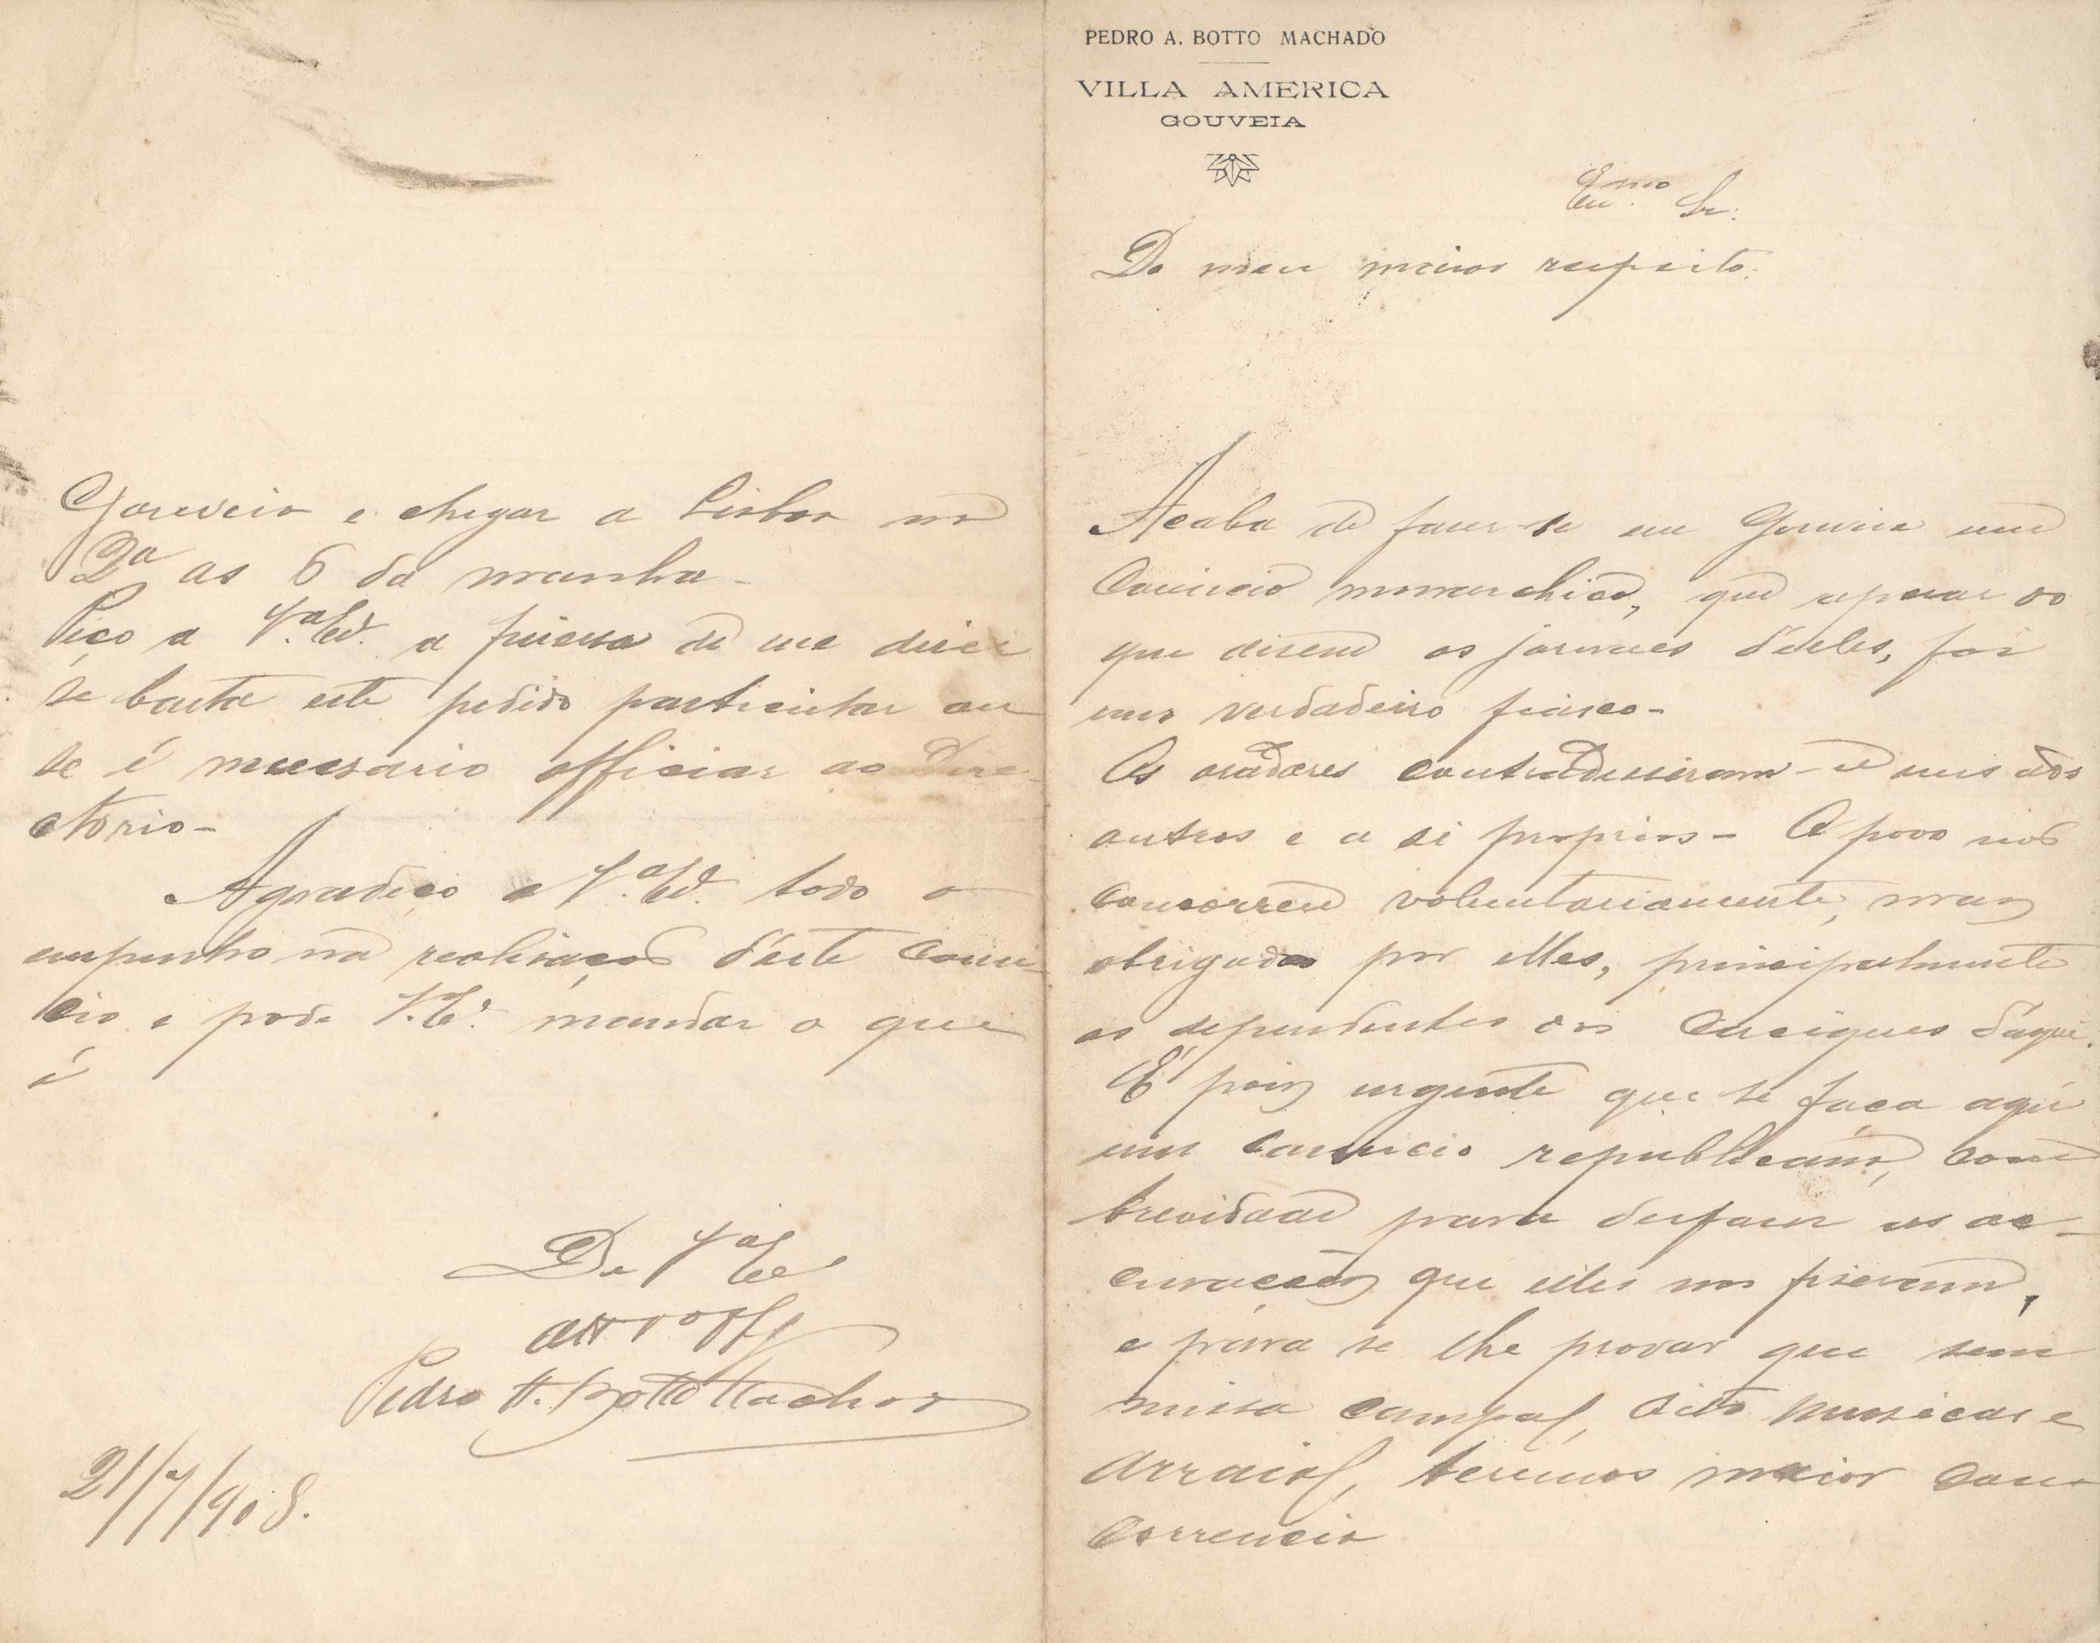 PEDRO A. BOTTO MACHADO
VILLA AMERICA
GOUVEIA
Exmo Sr.
Do meu maior respeito.
Acaba de fazer-se em Gouveia um
Comicio monarchico, que apesar do
que dizem os jornaes d'elles, foi
um verdadeiro fiasco-
Os oradores contradisseram-se uns aos
outros e a si proprios- O povo não
concorreu voluntariamente, mas
obrigado por elles, principalmente
os dependentes dos caciques d'aqui.
É pois urgente que se faça aqui
um comicio republicano, com
brevidade para desfazer as ac-
cusações que elles nos fizeram,
e para se lhe provar que sem
missa campal, oito musicas e
arraial, teremos maior con-
correncia
Gouveia e chegar a Lisboa na
2ª as 6 da manhã-
Peço a V.ª Ex.ª a fineza de me dizer
se basta este pedido particular ou
se é necessario officiar ao Dire-
ctorio-
Agradeço a V.ª Ex.ª todo o
empenho na realisação d'este comi-
cio e pode V.ª Ex.ª mandar o que
é
De V.ª Ex.ª
Pedro A. Botto Machado
21/7/908.